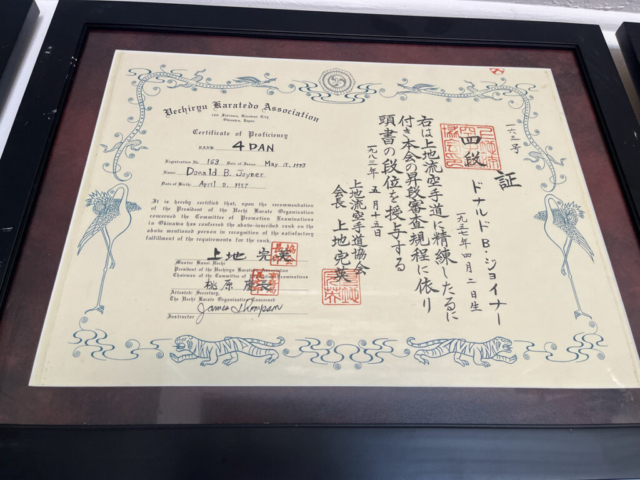 Uechiryu Karatedo Association
166 Futenma Ginowan City
Okinawa, Japan
Certificate of Proficiency
RANK 4 DAN
Registration No 163 Date of Issue May 15, 1983
Name Donald B. Joyner
Date of Birth April 2, 1957
It is hereby certified that, upon the recommendation
of the President of the Uechi Karate Organization
concerned the Committee of Promotion Examinations
in Okinawa has conferred the above-inscribed rank on the
above mentioned person in recognition of the satisfactory
fulfillment of the requirements for the rank.
上地完英
Master Kanei Uechi
President of the Uechiryu Karatedo Association
Chairman of the Committee of Promotion Examinations
桃原
Attested: Secretary,
The Uechi Karate Organization Concerned
Instructor James Thompson
一六三号
証
四段
ドナルドB・ジョイナー
一九五七年四月二日生
右は上地流空手道に精練したるに
付き本会の昇段審査規程に依り
頭書の段位を授与する
一九八三年五月十五日
上地流空手道協会
会長 上地完英